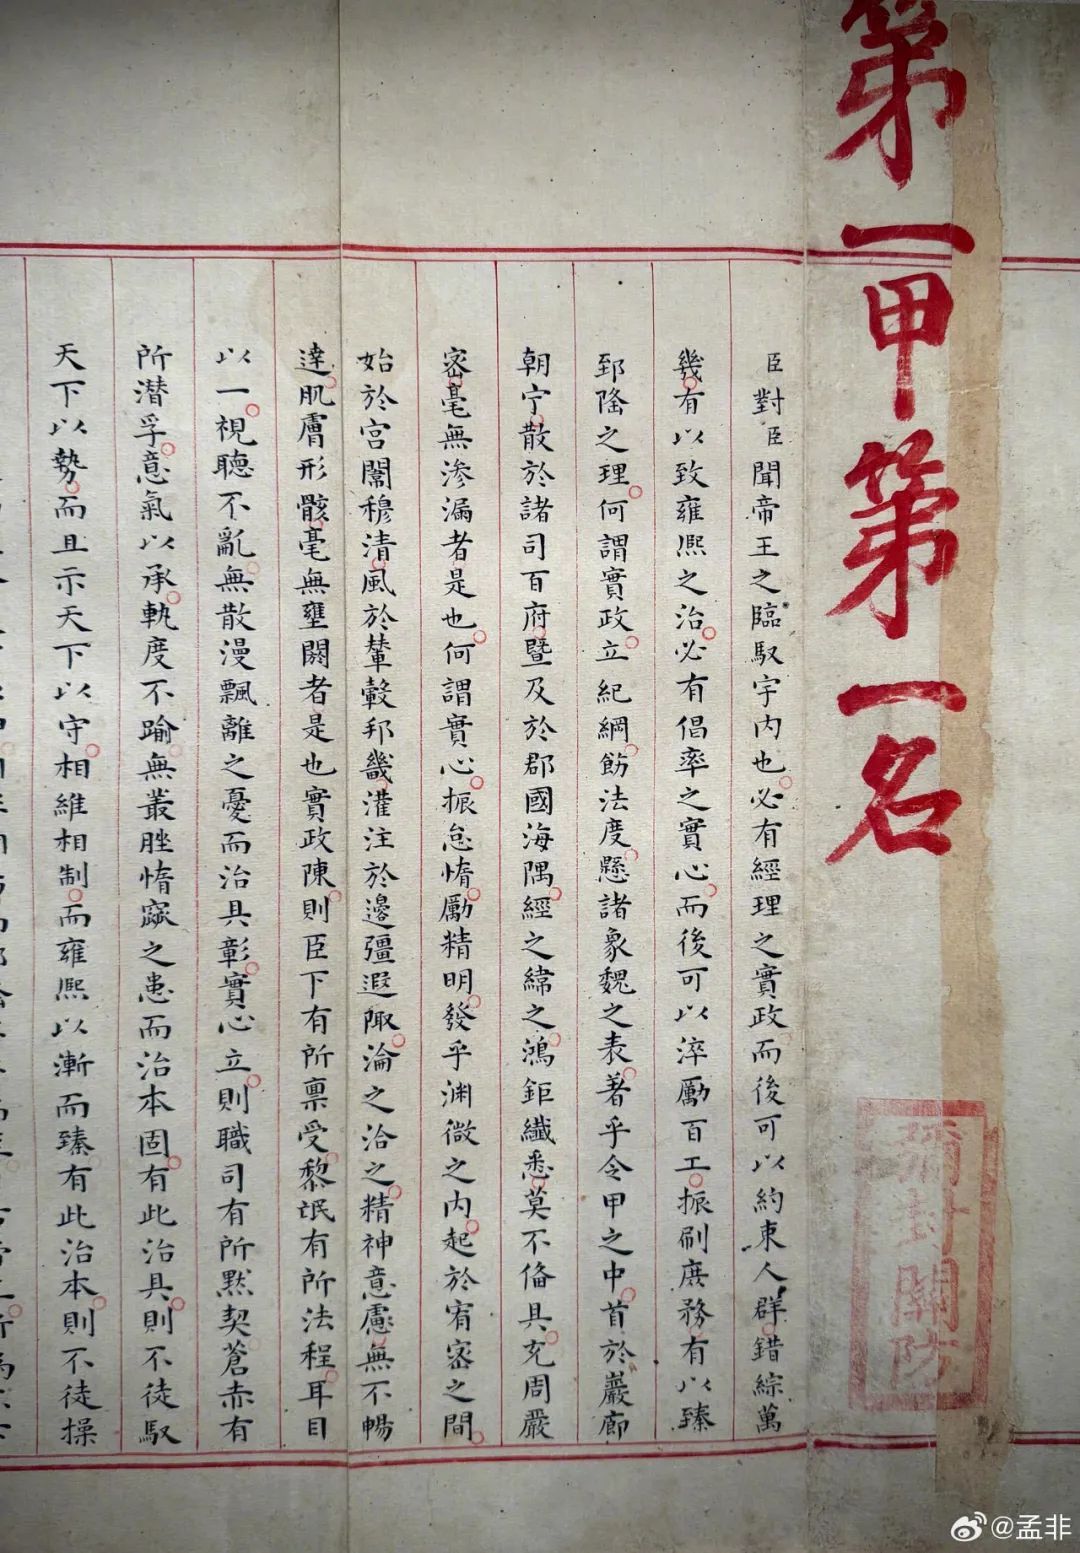 第一甲第一名
彌封關防
臣對臣聞帝王之臨馭宇内也必有經理之實政而後可以約束人群錯綜萬
幾有以致雍熙之治必有倡率之實心而後可以淬勵百工振刷庶務有以臻
郅隆之理何謂實政立紀綱飭法度懸諸象魏之表著乎令甲之中首於巖廊
朝宁散於諸司百府暨及於郡國海隅經之緯之鴻鉅纖悉莫不俻具充周嚴
密毫無渗漏者是也何謂實心振怠惰勵精明發乎渊微之内起於宥密之間
始於宫闈穆清風於輦轂邦畿灌注於邊彊遐陬淪之洽之精神意慮無不暢
達肌膚形骸毫無壅閼者是也實政陳則臣下有所禀受黎氓有所法程耳目
以一視聽不亂無散漫飄離之憂而治具彰實心立則職司有所黙契蒼赤有
所潜孚意氣以承軌度不踰無叢脞惰窳之患而治本固有此治具則不徒馭
天下以勢而且示天下以守相維相制而雍熙以漸而臻有此治本則不徒操
@孟非